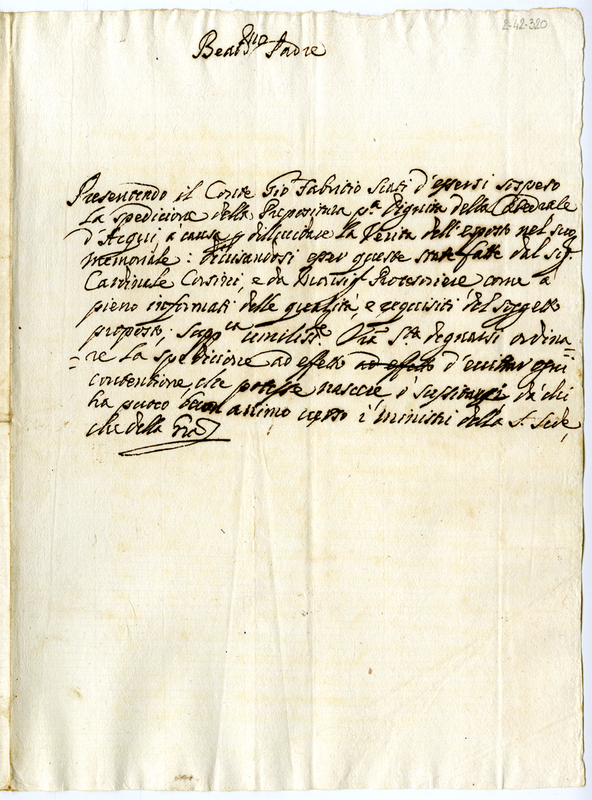 2-42-320
Beatmo Padre
Presentendo il Conte Gio Fabritio Scati d'essersi sospeso
la spedicione della Prepositura pa Dignità della Catedrale
d'Acqui, a causa di la Verità dell'esposto nel suo
memoriale: esser queste state fatte dal sig
Cardinale Corsini, e da Tesoriere come a
pieno informati delle qualità, e requisiti del sogetto
proposto; suppca umilisse Vra Stà degnarsi ordina=
=re la spedicione ad effetto ad effetto d'evitar ogni
contentione, che potesse nascere, ò da chi
ha puoco buon animo verso i ministri della S. Sede,
che della Gra